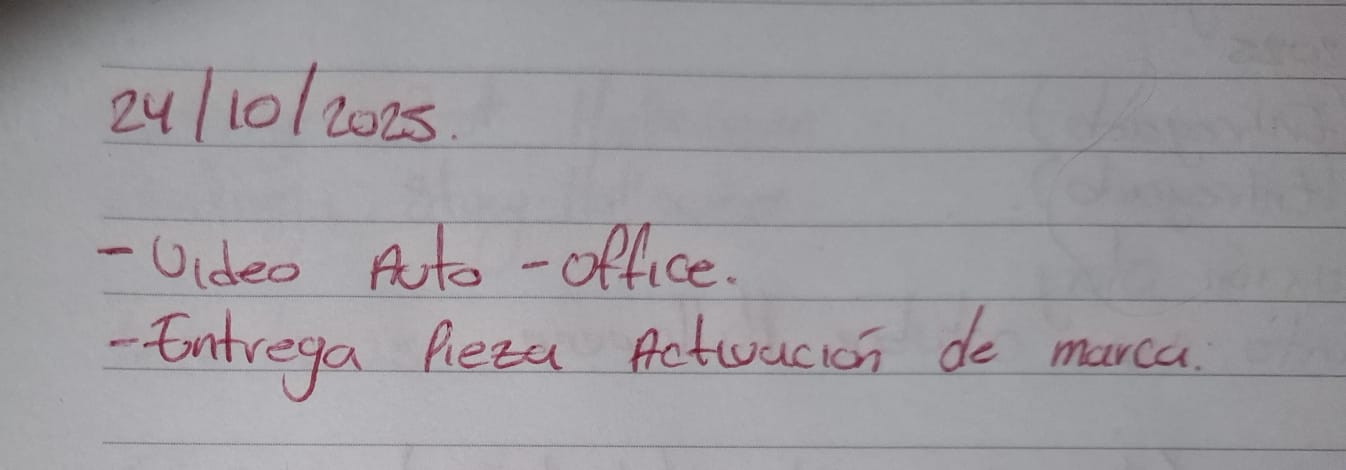 24/10/2025.
- Video Auto - office.
- Entrega Pieza Activación de marca.